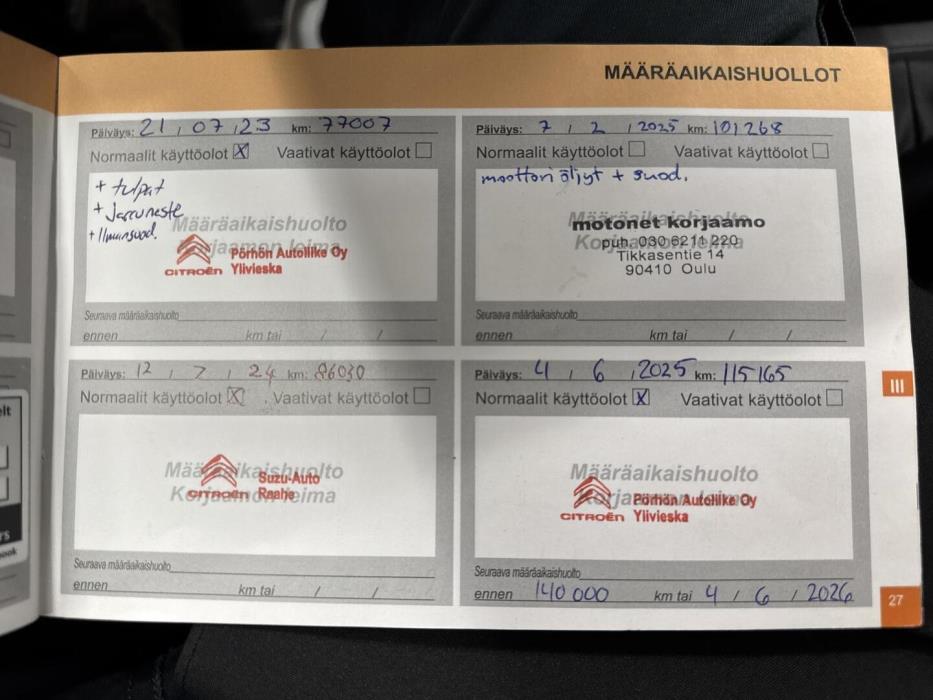 MÄÄRÄAIKAISHUOLLOT
Päiväys: 21 / 07 / 23 km: 77007
Normaalit käyttöolot X Vaativat käyttöolot
+ tulpat
+ Jarruneste
+ Ilmansuod.
Määräaikaishuolto
Korjaamon leima
CITROËN
Pörhön Autoliike Oy
Ylivieska
Seuraava määräaikaishuolto
ennen km tai / /
Päiväys: 12 / 7 / 24 km: 86030
Normaalit käyttöolot X Vaativat käyttöolot
Määräaikaishuolto
Korjaamon leima
CITROËN
Suzu-Auto
Raahe
Seuraava määräaikaishuolto
ennen km tai / /
Päiväys: 7 / 2 / 2025 km: 101268
Normaalit käyttöolot Vaativat käyttöolot
moottori öljyt + suod.
Määräaikaishuolto
Korjaamon leima
motonet korjaamo
puh. 030 6211 220
Tikkasentie 14
90410 Oulu
Seuraava määräaikaishuolto
ennen km tai / /
Päiväys: 4 / 6 / 2025 km: 115165
Normaalit käyttöolot X Vaativat käyttöolot
Määräaikaishuolto
Korjaamon leima
CITROËN
Pörhön Autoliike Oy
Ylivieska
Seuraava määräaikaishuolto
ennen 140 000 km tai 4 / 6 / 2026
III
27